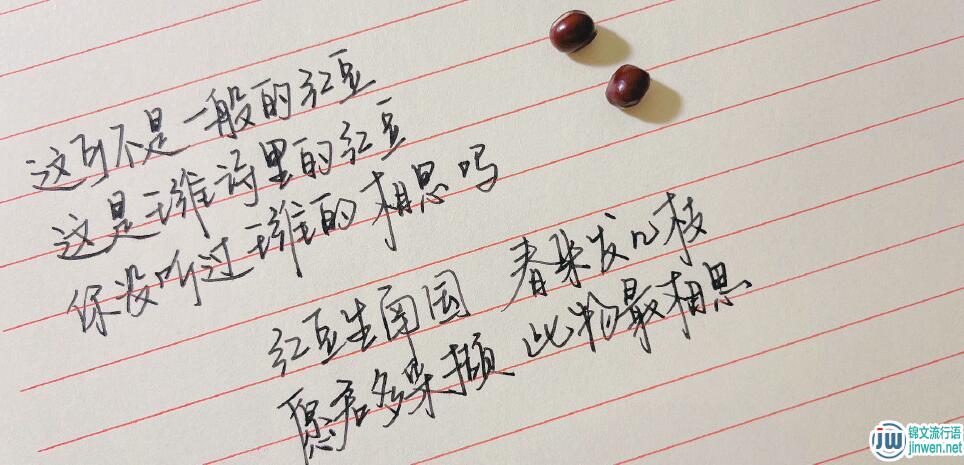 这可不是一般的红豆
这是王维诗里的红豆
你没听过王维的相思吗
红豆生南国 春来发几枝
愿君多采撷 此物最相思
JW 锦文流行语
jinwen.net